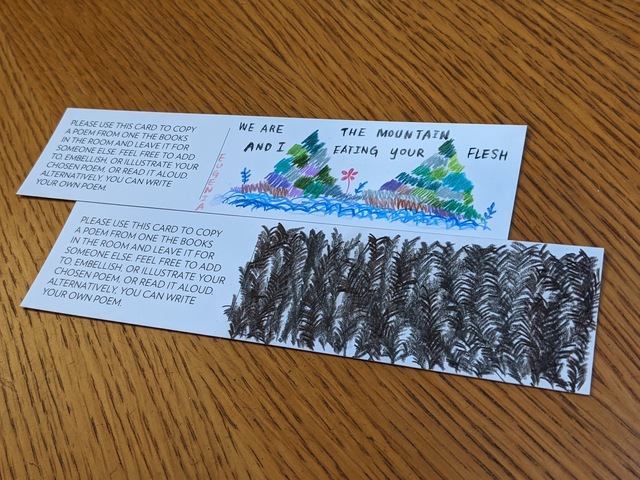 PLEASE USE THIS CARD TO COPY
A POEM FROM ONE THE BOOKS
IN THE ROOM AND LEAVE IT FOR
SOMEONE ELSE. FEEL FREE TO ADD
TO, EMBELLISH, OR ILLUSTRATE YOUR
CHOSEN POEM, OR READ IT ALOUD.
ALTERNATIVELY, YOU CAN WRITE
YOUR OWN POEM.
WE ARE THE MOUNTAIN
AND I EATING YOUR FLESH
PLEASE USE THIS CARD TO COPY
A POEM FROM ONE THE BOOKS
IN THE ROOM AND LEAVE IT FOR
SOMEONE ELSE. FEEL FREE TO ADD
TO, EMBELLISH, OR ILLUSTRATE YOUR
CHOSEN POEM, OR READ IT ALOUD.
ALTERNATIVELY, YOU CAN WRITE
YOUR OWN POEM.